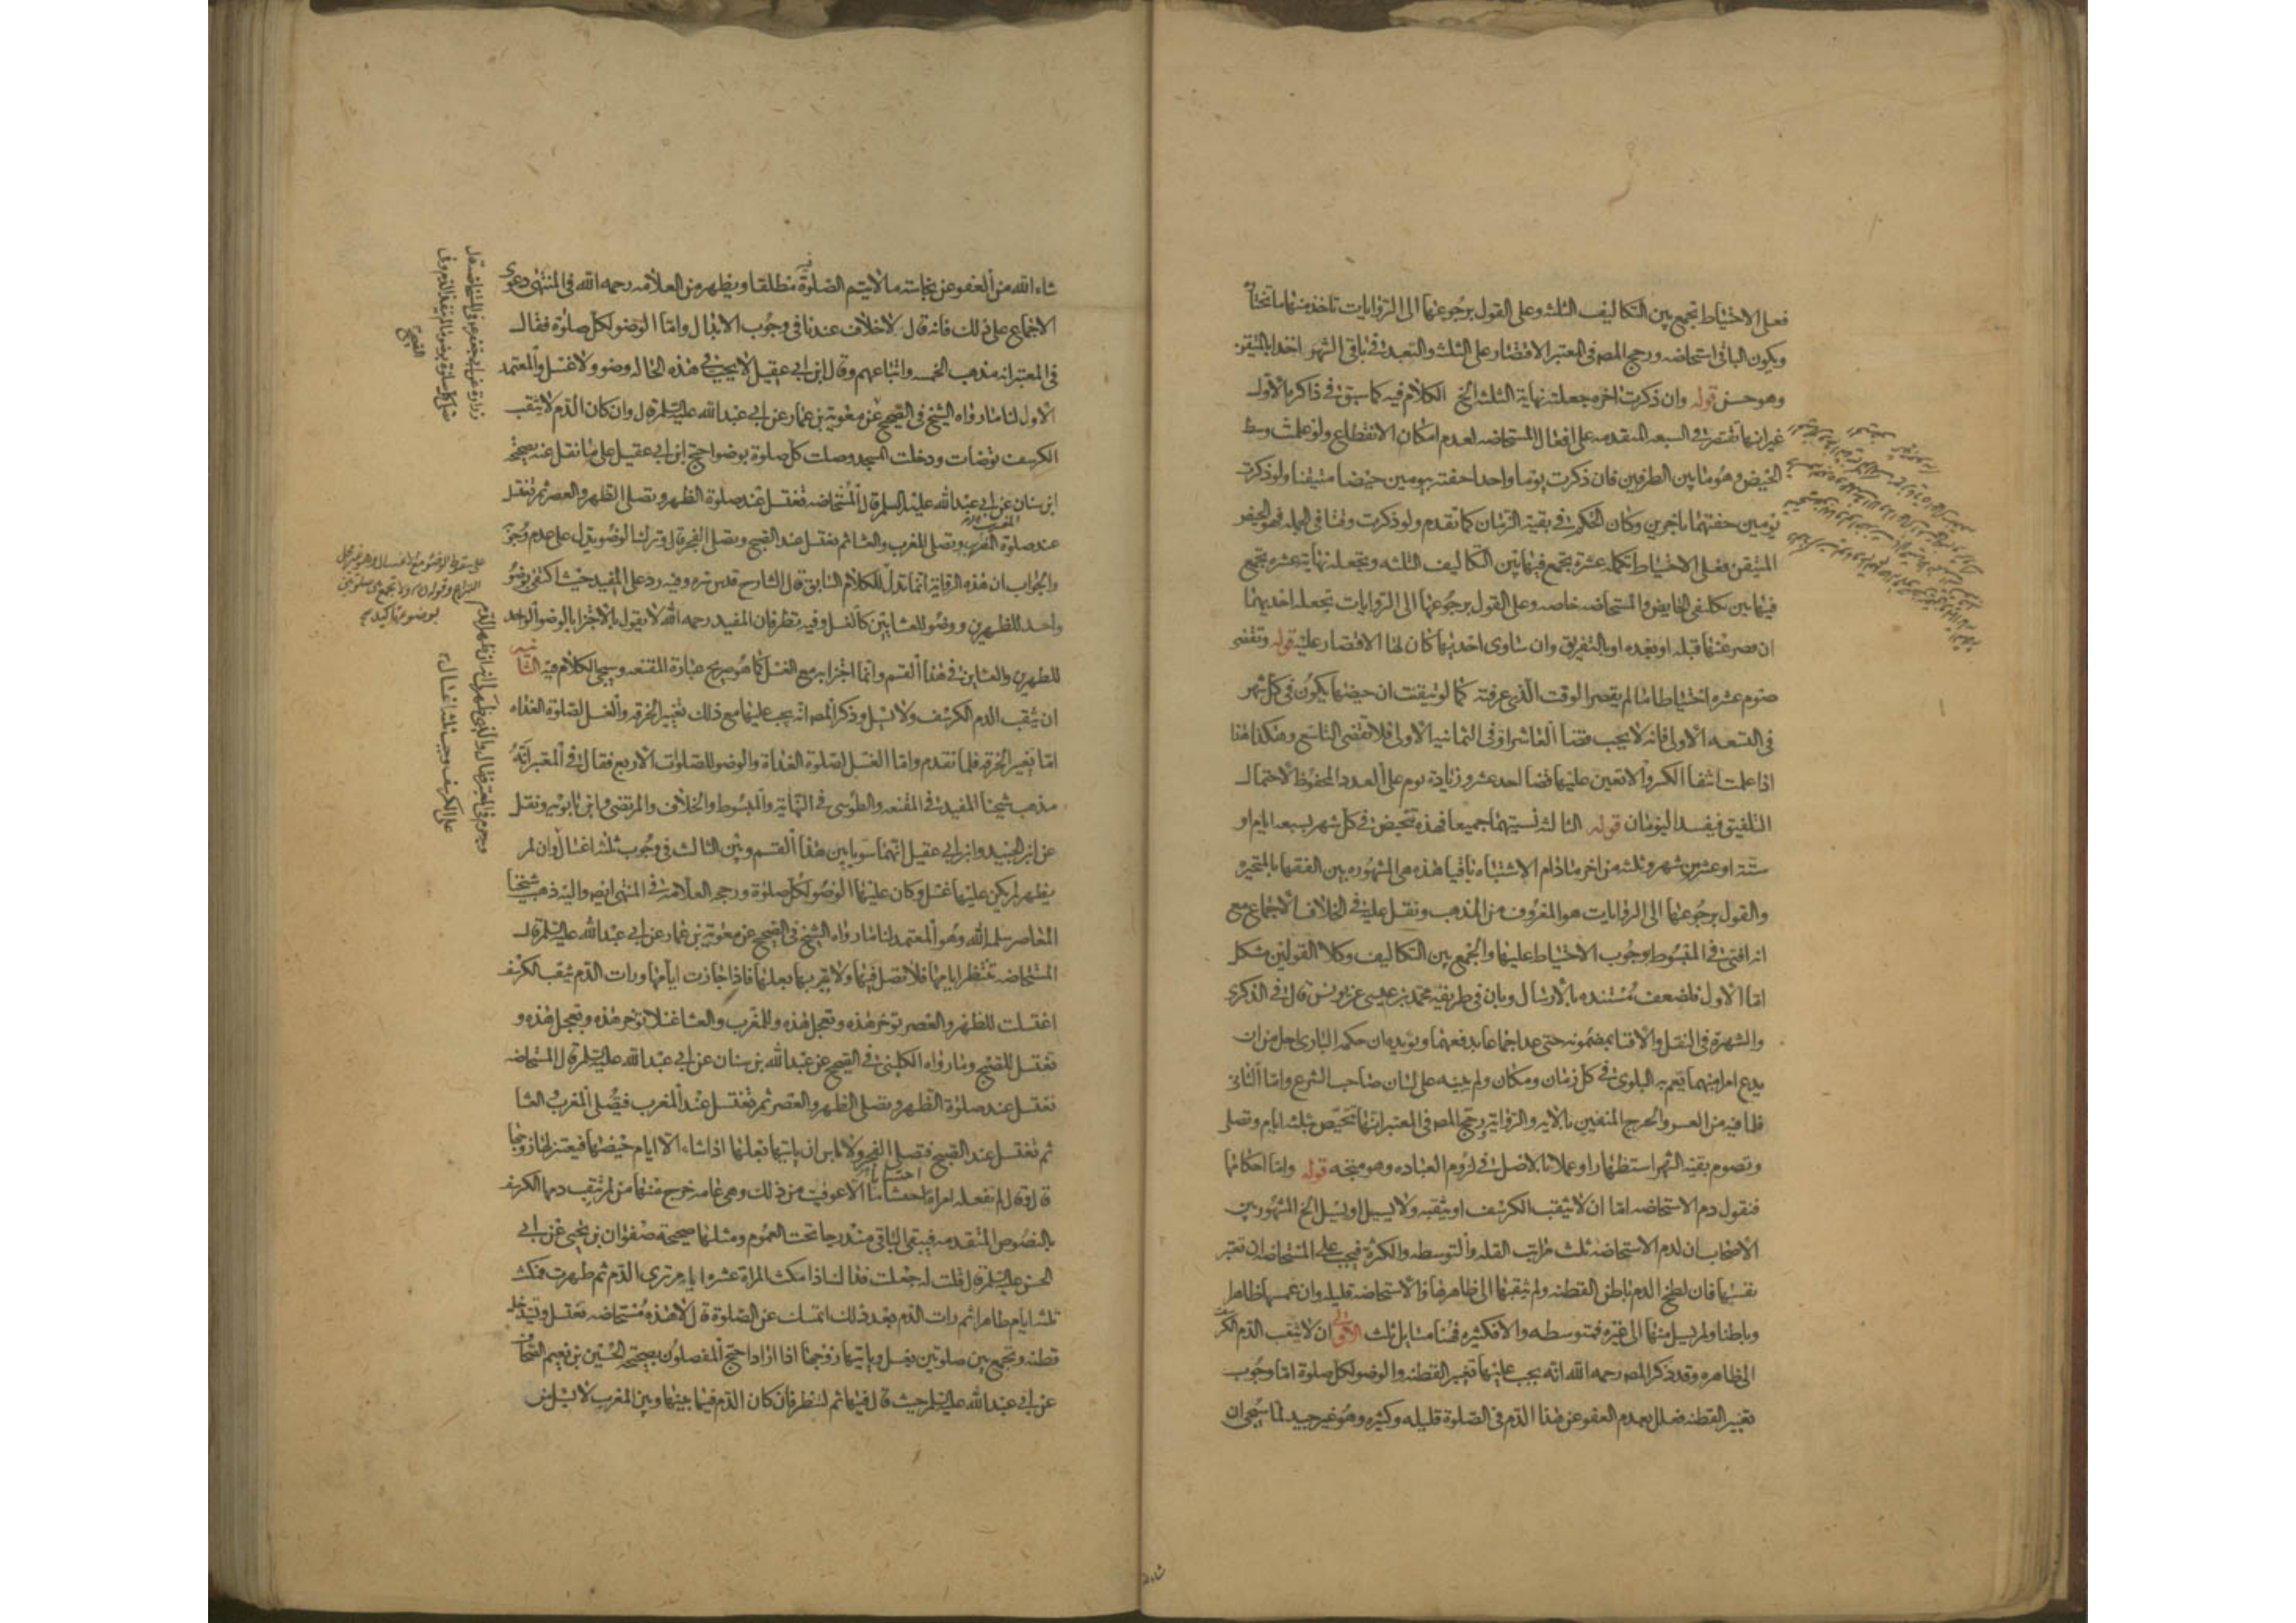 فعلى الاحتياط تجمع بين التكاليف الثلثه وعلى القول برجوعها الى الروايات تاخذ منها ما تختار
ويكون الباقى استحاضه ورجح المصه فى المعتبر الاقتصار على الثلثه والتعبد فى باقى الشهر اخذا بالمتيقن
وهو حسن قوله وان ذكرت اخره جعلته نهاية الثلثه الخ الكلام فيه كما سبق فى ذاكرة الاول
غير انها تقتصر فى السبعه المتقدمه على افعال المستحاضه لعدم امكان الانقطاع ولو علمت وسط
الحيض وهو ما بين الطرفين فان ذكرت يوما واحدا حفته بيومين حيضا متيقنا ولو ذكرت
يومين حفتهما باخرين وكان الحكم فى بقية الزمان كما تقدم ولو ذكرت وقتا فى الجمله فهو الحيض
المتيقن فعلى الاحتياط تكمله عشرة تجمع فيها بين التكاليف الثلثه وتجعله نهاية عشره تجمع
فيها بين تكليفى الحايض والمستحاضه خاصه وعلى القول برجوعها الى الروايات تجعله احديهما
ان قصر عنها قبله او بعده او بالتفريق وان ساوى احديهما كان لها الاقتصار عليه قوله وتقضى
صوم عشره احتياطا ما لم يقصر الوقت الذى عرفته كما لو تيقنت ان حيضها يكون فى كل شهر
فى التسعه الاولى فانه لا يجب قضا العاشر او فى الثمانيه الاولى فلا تقضى التاسع وهكذا هذا
اذا علمت انتفا الكسر والا تعين عليها قضا احد عشر وزيادة يوم على العدد المحفوظ لاحتمال
التلفيق فيفسد اليومان قوله الثالثه نسيتهما جميعا فهذه تتحيض فى كل شهر بسبعه ايام او
ستة او عشره من شهر وثلثه من اخر ما دام الاشتباه باقيا هذه هى المشهوره بين الفقها بالمتحيره
والقول برجوعها الى الروايات هو المعروف من المذهب ونقل عليه فى الخلاف الاجماع مع
انه افتى فى المبسوط بوجوب الاحتياط عليها والجمع بين التكاليف وكلا القولين مشكل
اما الاول فلضعف مستنده بالارسال وبان فى طريقه محمد بن عيسى عن يونس قال فى الذكرى
والشهرة فى النقل والافتا بمضمونه حتى عد اجماعا يدفعهما ويؤيده ان حكمة البارى اجل من ان
يدع امرا مبهما تعم به البلوى فى كل زمان ومكان ولم يبينه على لسان صاحب الشرع واما الثانى
فلما فيه من العسر والحرج المنفيين بالايه والرواية ورجح المصه فى المعتبر انها تتحيض ثلثه ايام وتصلى
وتصوم بقية الشهر استظهارا وعملا بالاصل فى لزوم العباده وهو متجه قوله واما احكامها
فنقول دم الاستحاضه اما ان لا يثقب الكرسف او يثقبه ولا يسيل او يسيل الخ المشهور بين
الاصحاب ان لدم الاستحاضة ثلث مراتب القله والتوسطه والكثرة فيجب على المستحاضه ان تعتبر
نفسها فان لطخ الدم باطن القطنه ولم يثقبها الى ظاهرها فالاستحاضه قليله وان غمسها ظاهرا
وباطنا ولم يسل منها الى غيره فمتوسطه والا فكثيره فهنا مسايل ثلث الاولى ان لا يثقب الدم الكرسف
الى ظاهره وقد ذكر المصه رحمه الله انه يجب عليها تغيير القطنه والوضو لكل صلوة اما وجوب
تغيير القطنه فعلل بعدم العفو عن هذا الدم فى الصلوة قليله وكثيره وهو غير جيد لما سيجى ان
شاء الله من العفو عن نجاسة ما لا يتم الصلوة فيه مطلقا ويظهر من العلامه رحمه الله فى المنتهى دعوى
الاجماع على ذلك فانه قال لا خلاف عندنا فى وجوب الابدال واما الوضو لكل صلوة فقال
فى المعتبر انه مذهب الخمسه واتباعهم وقال ابن ابى عقيل لا يجب فى هذه الحاله وضو ولا غسل والمعتمد
الاول لنا ما رواه الشيخ فى الصحيح عن معوية بن عمار عن ابى عبدالله عليه السلم قال وان كان الدم لا يثقب
الكرسف توضات ودخلت المسجد وصلت كل صلوة بوضو احتج ابن ابى عقيل على ما نقل عنه بصحيحة
ابن سنان عن ابى عبدالله عليه السلم قال المستحاضه تغتسل عند صلوة الظهر وتصلى الظهر والعصر ثم تغتسل
عند صلوة المغرب وتصلى المغرب والعشا ثم تغتسل عند الصبح وتصلى الفجر قال وترك الوضو يدل على عدم وجوبه
والجواب ان هذه الرواية انما تدل للكلام السابق قال الشارح قدس سره وفيه رد على المفيد حيث اكتفى بوضو
واحد للظهرين ووضو للعشايين كالغسل وفيه نظر فان المفيد رحمه الله لا يقول بالاجتزا بالوضو الواحد
للظهرين والعشاين فى هذا القسم وانما اجتزا به مع الغسل كما هو صريح عبارة المقنعه وسيجى الكلام فيه الثانيه
ان يثقب الدم الكرسف ولا يسيل وذكر المصه انه يجب عليها مع ذلك تغيير الخرقه والغسل لصلوة الغداه
اما تغيير الخرقه فلما تقدم واما الغسل لصلوة الغداة والوضو للصلوات الاربع فقال فى المعتبر انه
مذهب شيخنا المفيد فى المقنعه والطوسى فى النهاية والمبسوط والخلاف والمرتضى وابن بابويه ونقل
عن ابن الجنيد وابن ابى عقيل انهما سويا بين هذا القسم وبين الثالث فى وجوب ثلثة اغسال وان لم
يظهر لم يكن عليها غسل وكان عليها الوضو لكل صلوة ورجحه العلامه فى المنتهى ايضا واليه ذهب شيخنا
المعاصر سلمه الله وهو المعتمد لنا ما رواه الشيخ فى الصحيح عن معوية بن عمار عن ابى عبدالله عليه السلم قال
المستحاضه تنتظر ايامها فلا تصلى فيها ولا يقربها بعلها فاذا جازت ايامها ورات الدم يثقب الكرسف
اغتسلت للظهر والعصر تؤخر هذه وتعجل هذه وللمغرب والعشا غسلا تؤخر هذه وتعجل هذه و
تغتسل للصبح وما رواه الكلينى فى الصحيح عن عبدالله بن سنان عن ابى عبدالله عليه السلم قال المستحاضه
تغتسل عند صلوة الظهر وتصلى الظهر والعصر ثم تغتسل عند المغرب فتصلى المغرب والعشا
ثم تغتسل عند الصبح فتصلى الفجر ولا باس ان ياتيها بعلها اذا شاء الا ايام حيضها فيعتزلها زوجها
قال وقال لم تفعله امراة احتسابا الا عوفيت من ذلك وهى عامه خرج منها من لم يثقب دمها الكرسف
بالنصوص المتقدمه فيبقى الباقى مندرجا تحت العموم ومثلها صحيحة صفوان بن يحيى عن ابى
الحسن عليه السلم قال قلت له جعلت فداك اذا مكثت المراة عشرة ايام ترى الدم ثم طهرت فمكثت
ثلثه ايام طاهرا ثم رات الدم بعد ذلك اتمسك عن الصلوة قال لا هذه مستحاضه تغتسل وتستدخل
قطنه وتجمع بين صلوتين بغسل وياتيها زوجها اذا اراد احتج المفصلون بصحيحة الحسين بن نعيم الصحاف
عن ابى عبدالله عليه السلم حيث قال فيها ثم لتنظر فان كان الدم فيما بينها وبين المغرب لا يسيل من